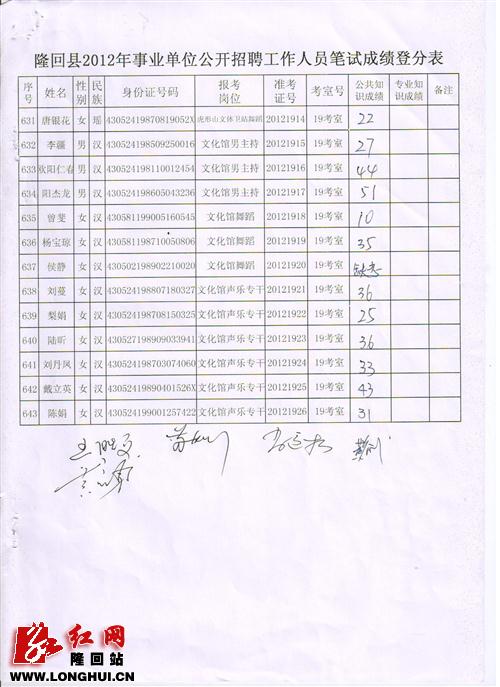 隆回县2012年事业单位公开招聘工作人员笔试成绩登分表
序号 姓名 性别 民族 身份证号码 报考岗位 准考证号 考室号 公共知识成绩 专业知识成绩 备注
631 唐银花 女 瑶 43052419870819052X 虎形山文体卫站舞蹈 20121914 19考室 22
632 李疆 男 汉 430524198509250016 文化馆男主持 20121915 19考室 27
633 欧阳仁春 男 汉 430524198110012454 文化馆男主持 20121916 19考室 44
634 阳杰龙 男 汉 430524198605043236 文化馆男主持 20121917 19考室 51
635 曾斐 女 汉 430581199005160545 文化馆舞蹈 20121918 19考室 10
636 杨宝琼 女 汉 430581198710050806 文化馆舞蹈 20121919 19考室 35
637 侯静 女 汉 430502198902210020 文化馆舞蹈 20121920 19考室 缺考
638 刘蔓 女 汉 430524198807180327 文化馆声乐专干 20121921 19考室 36
639 梨娟 女 汉 430524198708150325 文化馆声乐专干 20121922 19考室 25
640 陆昕 女 汉 430527198909033941 文化馆声乐专干 20121923 19考室 36
641 刘丹凤 女 汉 430524198703074060 文化馆声乐专干 20121924 19考室 33
642 戴立英 女 汉 43052419890401526X 文化馆声乐专干 20121925 19考室 43
643 陈娟 女 汉 430524199001257422 文化馆声乐专干 20121926 19考室 31
红网
隆回站
WWW.LONGHUI.CN